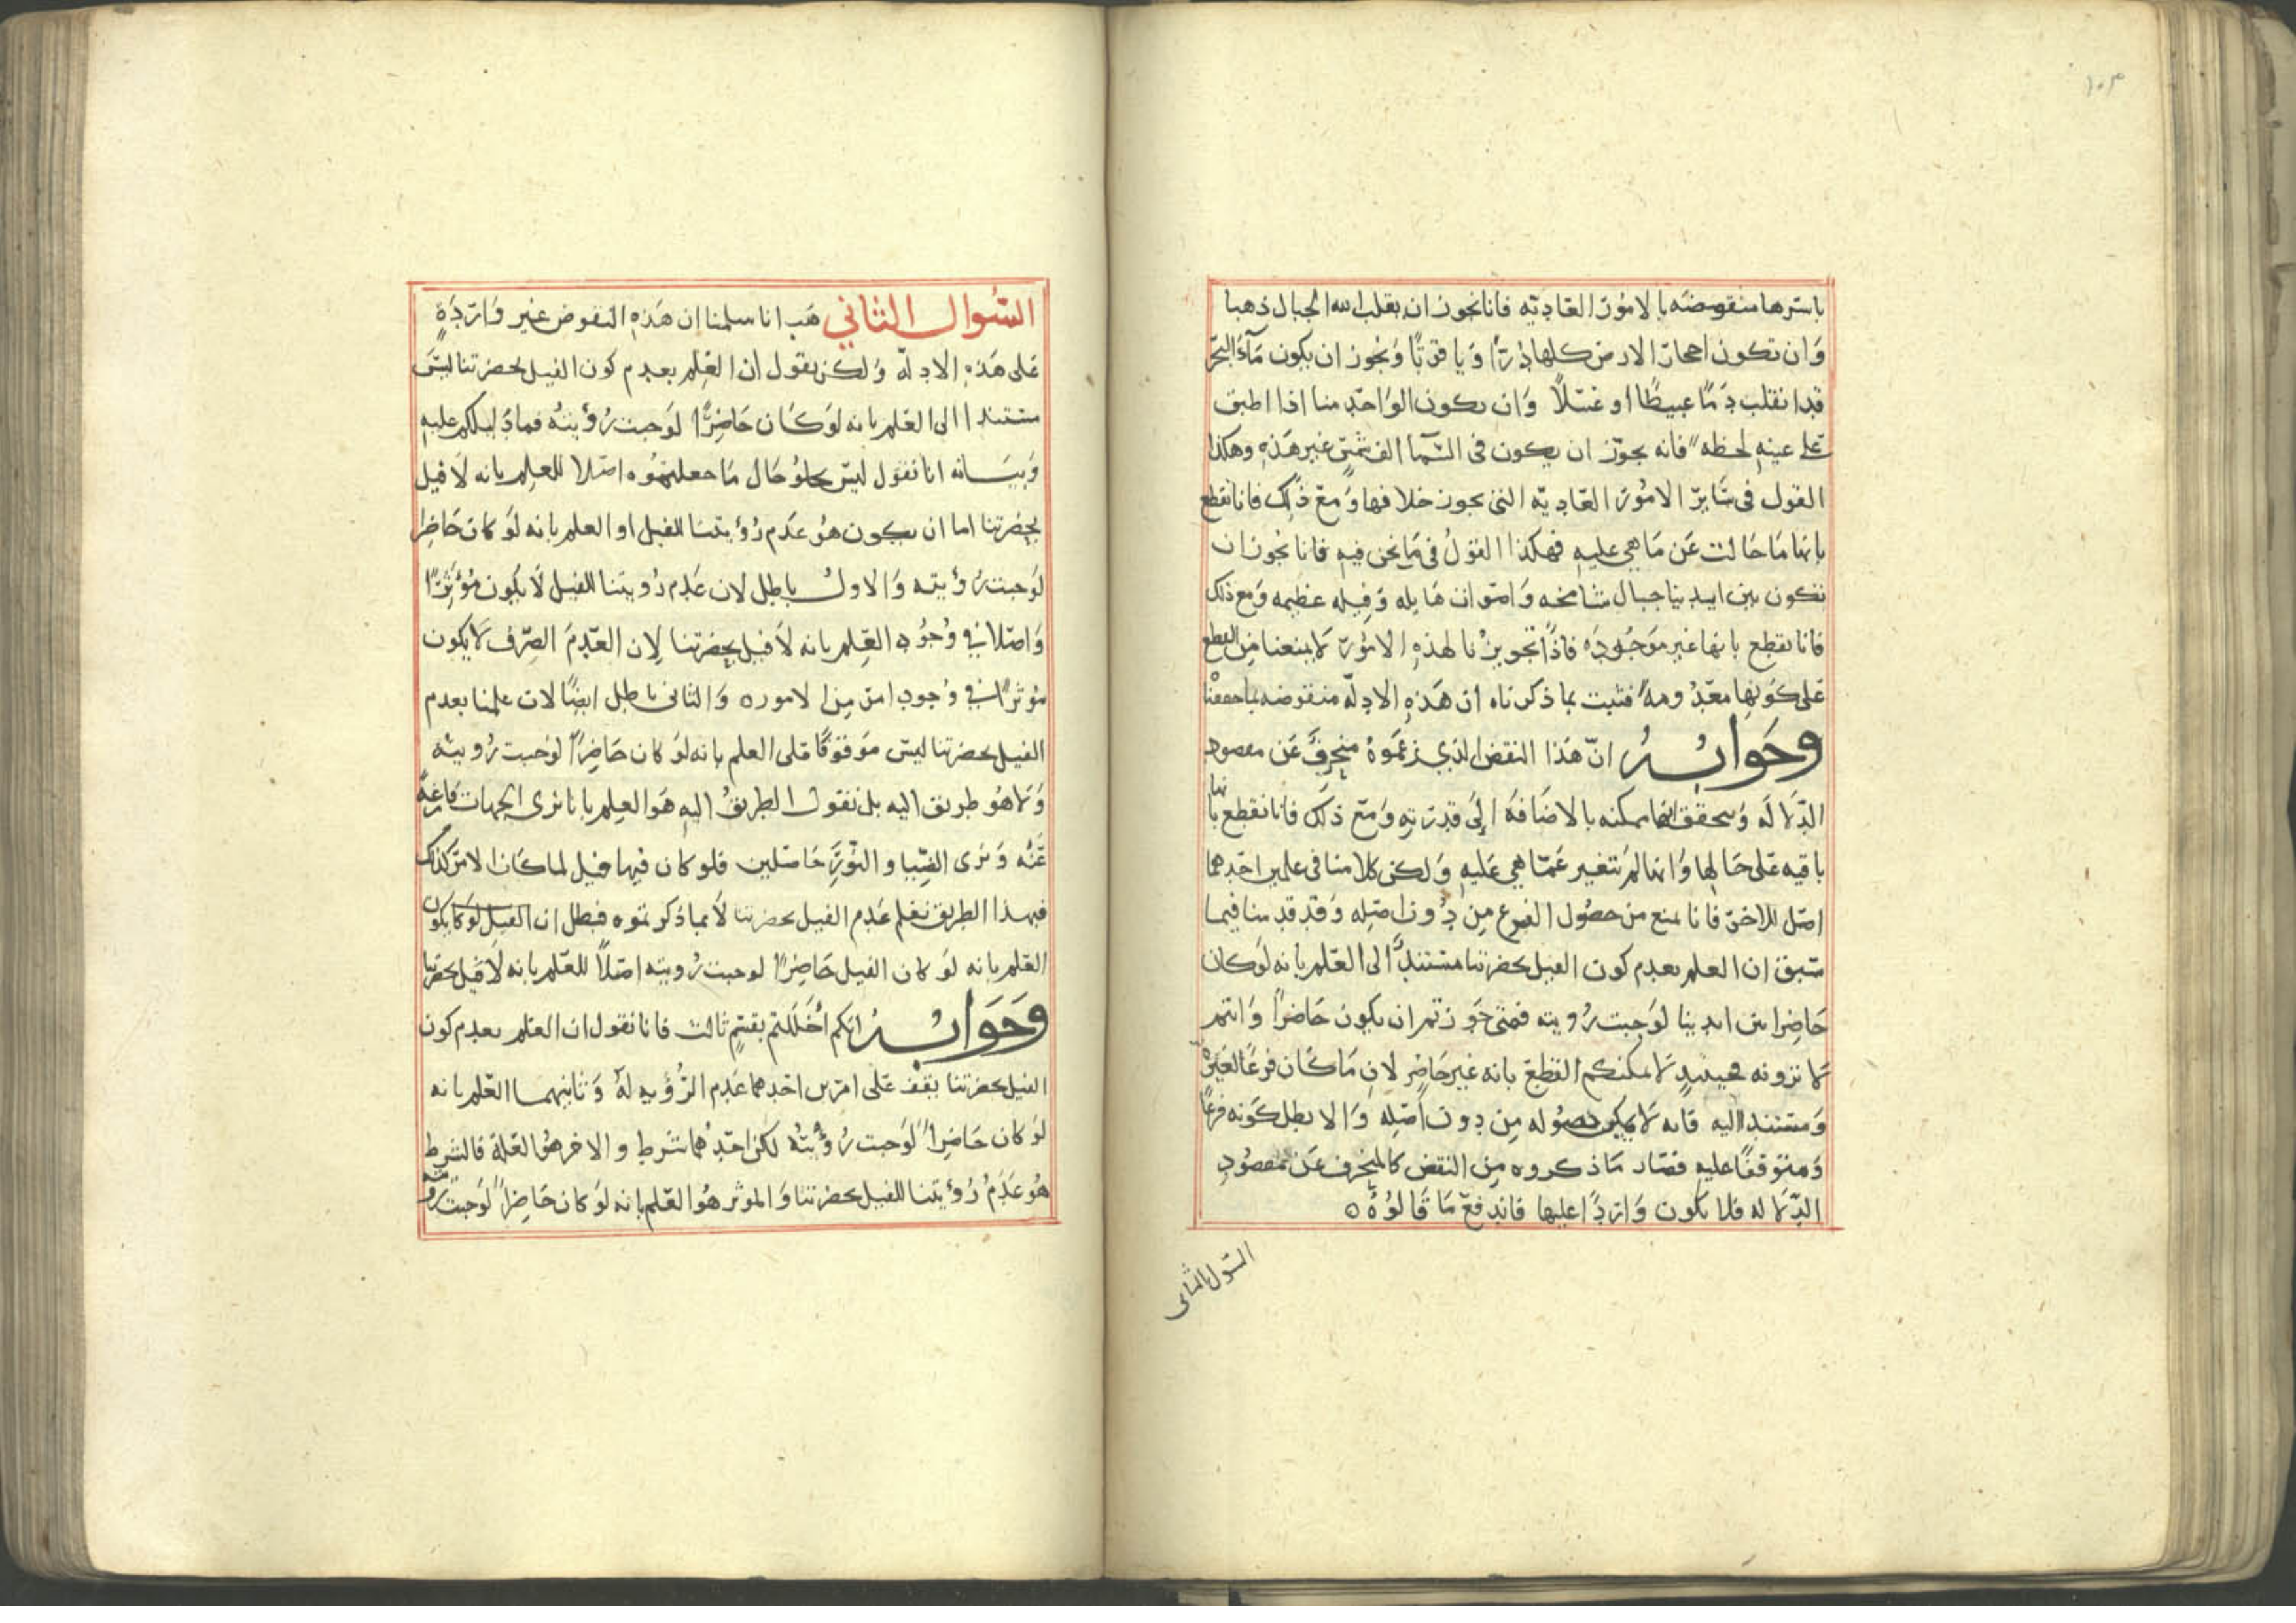 ١٠٣
باسرها منقوضه بالامور العاديه فانا نجوز ان يقلب الله الجبال ذهبا
وان تكون احجار الارض كلها درًا وياقوتًا ونجوز ان يكون مآء البحر
قد انقلب دمًا عبيطًا او عسلًا وان يكون الواحد منا اذا اطبق
على عينه لحظه فانه يجوز ان يكون فى السمآ الف شمس غير هذه وهكذا
القول فى سائر الامور العاديه التى يجوز خلافها ومع ذلك فانا نقطع
بانها ما حالت عن ما هي عليه فهكذا القول في ما نحن فيه فانا نجوز ان
تكون بين ايدينا جبال شامخه واصوات هايله وفيله عظيمه ومع ذلك
فانا نقطع بانها غير موجوده فاذًا تجويزنا لهذه الامور لا يمنعنا من القطع
على كونها معدومة فثبت بما ذكرناه ان هذه الادله منقوضه بما حققنا
وجوابه ان هذا النقض الذي زعموه منحرف عن مقصود
الدلاله ونحقق انها ممكنه بالاضافة إلى قدرته ومع ذلك فانا نقطع بانها
باقيه على حالها وانها لم تتغير عما هي عليه ولكن كلامنا فى علمين احدهما
اصل للاخر فانا نمنع من حصول الفرع من دون اصله وقد قدمنا فيما
سبق ان العلم بعدم كون الفيل بحضرتنا مستندًا الى العلم بانه لو كان
حاضرا بين ايدينا لوجبت رويته فمتى جوزتم ان يكون حاضرًا وانتم
لا ترونه فحينئذٍ لا يمكنكم القطع بانه غير حاضر لان ما كان فرعًا لغيره
ومستندا اليه فانه لا يمكن حصوله من دون اصله والا بطل كونه فرعًا
ومتوقفًا عليه فصار ما ذكروه من النقض كالمنحرف عن مقصود
الدلاله فلا يكون واردًا عليها فاندفع ما قالوه ه
السول الثاني
السُوال الثاني هب انا سلمنا ان هذه النقوض غير واردةٍ
على هذه الادله ولكن نقول ان العلم بعدم كون الفيل بحضرتنا ليس
مستندا الى العلم بانه لو كان حاضرًا لوجبت رؤيته فما دليلكم عليه
وبيانه انا نقول ليس يخلو حال ما جعلتموه اصلا للعلم بانه لا فيل
بحضرتنا اما ان يكون هو عدم رؤيتنا للفيل او العلم بانه لو كان حاضرا
لوجبت رؤيته والاول باطل لان عدم رويتنا للفيل لا يكون مؤثرًا
واصلا في وجود العلم بانه لا فيل بحضرتنا لان العدم الصرف لا يكون
موثرًا في وجود امر من الامور ه والثانى باطل ايضًا لان علمنا بعدم
الفيل بحضرتنا ليس موقوفًا على العلم بانه لو كان حاضرًا لوجبت رويته
ولا هو طريق اليه بل نقول الطريق اليه هو العلم بانا نرى الجهات فارغةً
عنه ونرى الضيا والنور حاصلين فلو كان فيها فيل لما كان الامر كذلك
فبهذا الطريق نعلم عدم الفيل بحضرتنا لا بما ذكرتموه فبطل ان يكون
العلم بانه لو كان الفيل حاضرًا لوجبت رويته اصلًا للعلم بانه لا فيل بحضرتنا
وجوابه انكم أخللتم بقسمٍ ثالث فانا نقول ان العلم بعدم كون
الفيل بحضرتنا يقف على امرين احدهما عدم الرؤيه له وثانيهما العلم بانه
لو كان حاضرًا لوجبت رؤيته لكن احدهما شرط والاخر هو العلة فالشرط
هو عدم رؤيتنا للفيل بحضرتنا والموثر هو العلم بانه لو كان حاضرًا لوجبت رويته